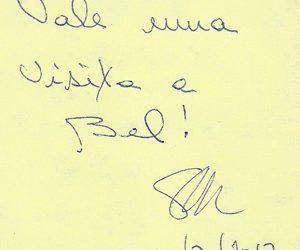 Vale uma
visita a
Bel!